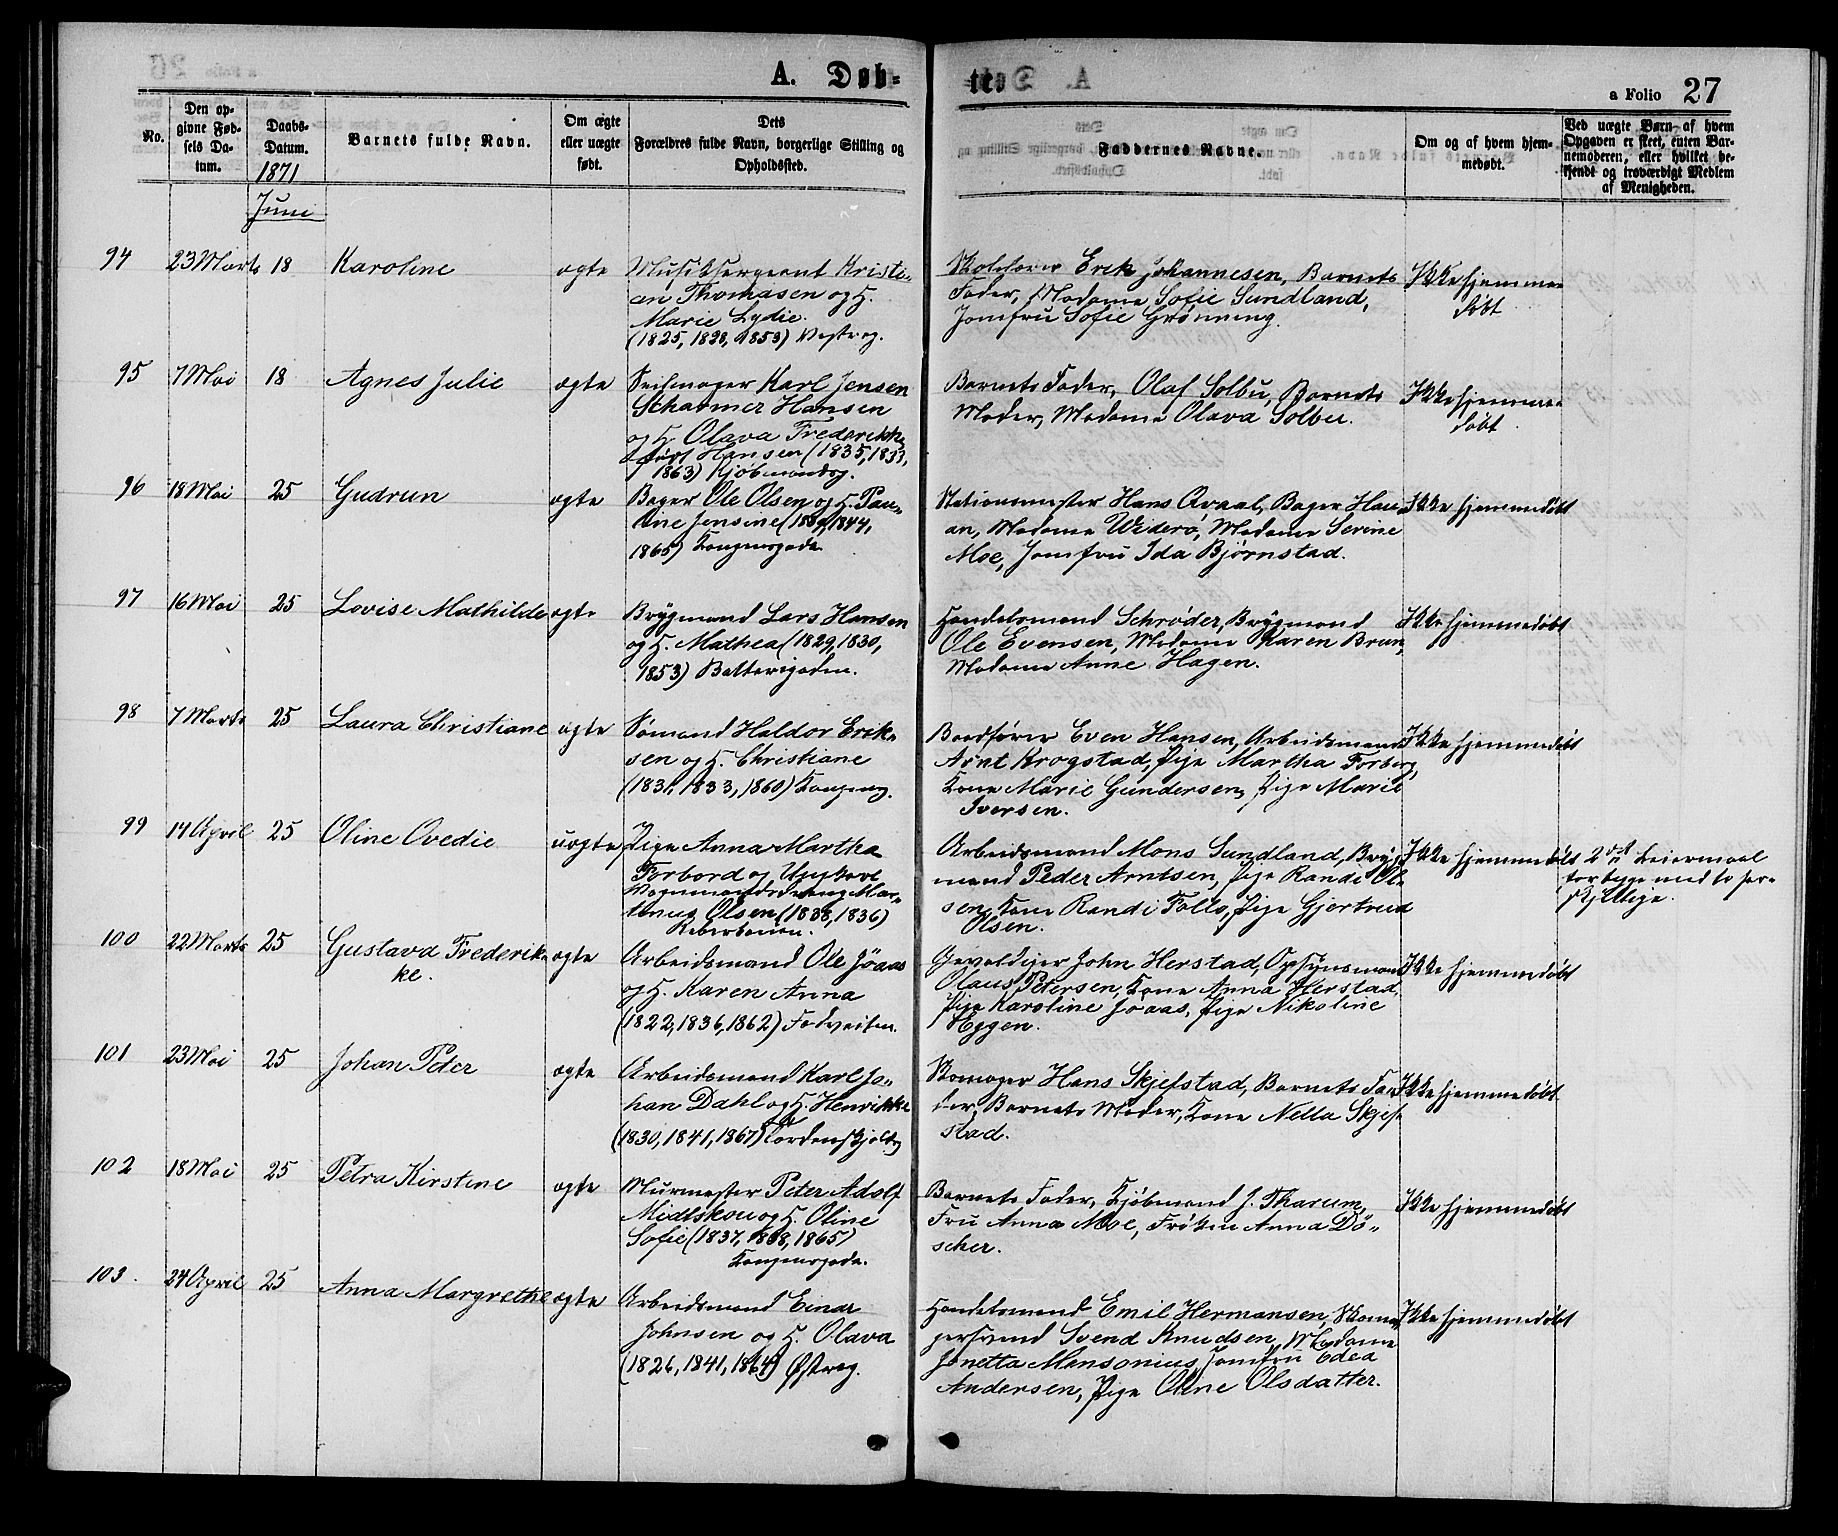 A. Døb-
tes
a Folio 27
No.
Den op-
givne Fød-
sels Da-
tum.
Daabs-
Datum.
1871
Barnets fulde Navn.
Om ægte
eller uægte
født.
Dets
Forældres fulde Navn, borgerlige Stilling og
Opholdssted.
Faddernes Navne.
Om og af hvem hjem-
medøbt.
Ved uægte Børn af hvem
Opgaven er skeet, enten Bar-
nemoderen, eller hvilket be-
kjendt og troværdigt Medlem
af Menigheden.
Juni
94 23 Marts 18 Karoline ægte Musiksergeant Kristi-
an Thomasen og H.
Marie Lydie.
(1825, 1828, 1853) Vestreg.
Erik Johannesen, Barnets
Fader, Madame Sofie Sundland,
Jomfru Sofie Grønning.
Ikke hjemme-
døbt
95 7 Mai 18 Agnes Julie ægte Seilmager Karl Jensen
Scharmer Hansen
og H. Olava Frederikke
født Hansen (1835, 1833,
1863) Kjøbmandsg.
Barnets Fader, Olaf Solbu, Barnets
Moder, Madame Olava Solbu.
Ikke hjemme-
døbt.
96 18 Mai 25 Gudrun ægte Bager Ole Olsen og H. Pau-
line Jensine (1839, 1844,
1865) Kongensgade.
Stationsmester Hans Qvaal, Bager Hau-
an, Madame Widerø, Madame Serine
Moe, Jomfru Ida Bjørnstad.
Ikke hjemmedøbt
97 16 Mai 25 Lovise Mathilde ægte Brygmand Lars Hansen
og H. Mathea (1829, 1830,
1853) Batterigaden.
Handelsmand Schrøder, Brygmand
Ole Evensen, Madame Karen Brun,
Madame Anne Hagen.
Ikke hjemmedøbt
98 7 Marts 25 Laura Christiane ægte Sømand Haldor Erik-
sen og H. Christiane
(1831, 1833, 1860) Kongensg.
Baadfører Even Hansen, Arbeidsmand
Arnt Krogstad, Pige Martha Forberg,
Kone Marie Gundersen, Pige Marie
Iversen.
Ikke hjemmedøbt
99 14 April 25 Oline Ovedie uægte Pige Anna Martha
Forbord og Ungkarl
Vognmandsdreng Mar-
tinus Olsen (1838, 1836)
Reberbanen.
Arbeidsmand Mons Sundland, Bryg-
mand Peder Arntsen, Pige Randi Ol-
sen, Kone Randi Falls, Pige Gjertrud
Olsen.
Ikke hjemmedøbt 2det Leiermaal
for begge med to for-
skjellige.
100 22 Marts 25 Gustava Frederik-
ke.
ægte Arbeidsmand Ole Jöaas
og H. Karen Anna
(1822, 1836, 1862) Fadveiten.
Gevaldiger John Herstad, Opsynsmand
Olaus Petersen, Kone Anna Herstad,
Pige Karoline Jöaas, Pige Nikoline
Eggen.
Ikke hjemmedøbt
101 23 Mai 25 Johan Peter ægte Arbeidsmand Karl Jo-
han Dahl og H. Henrikke
(1830, 1841, 1867) Tordenskjoldsg
Skomager Hans Skjefstad, Barnets Fa-
der, Barnets Moder, Kone Nella Skjef-
stad.
Ikke hjemmedøbt.
102 18 Mai 25 Petra Kirstine ægte Murmester Peter Adolf
Midtskou og H. Oline
Sofie (1837, 1838, 1865)
Kongensgade.
Barnets Fader, Kjøbmand J. Tharum,
Fru Anna Moe, Frøken Anna Dö-
scher.
Ikke hjemmedøbt
103. 24 April 25 Anna Margrethe ægte Arbeidsmand Einar
Johnsen og H. Olava
(1826, 1841, 1864) Østreg.
Handelsmand Emil Hermansen, Skoma-
gersvend Svend Knudsen, Madame
Jonetta Monsonius, Jomfru Edea
Andersen, Pige Oline Olsdatter.
Ikke hjemmedøbt